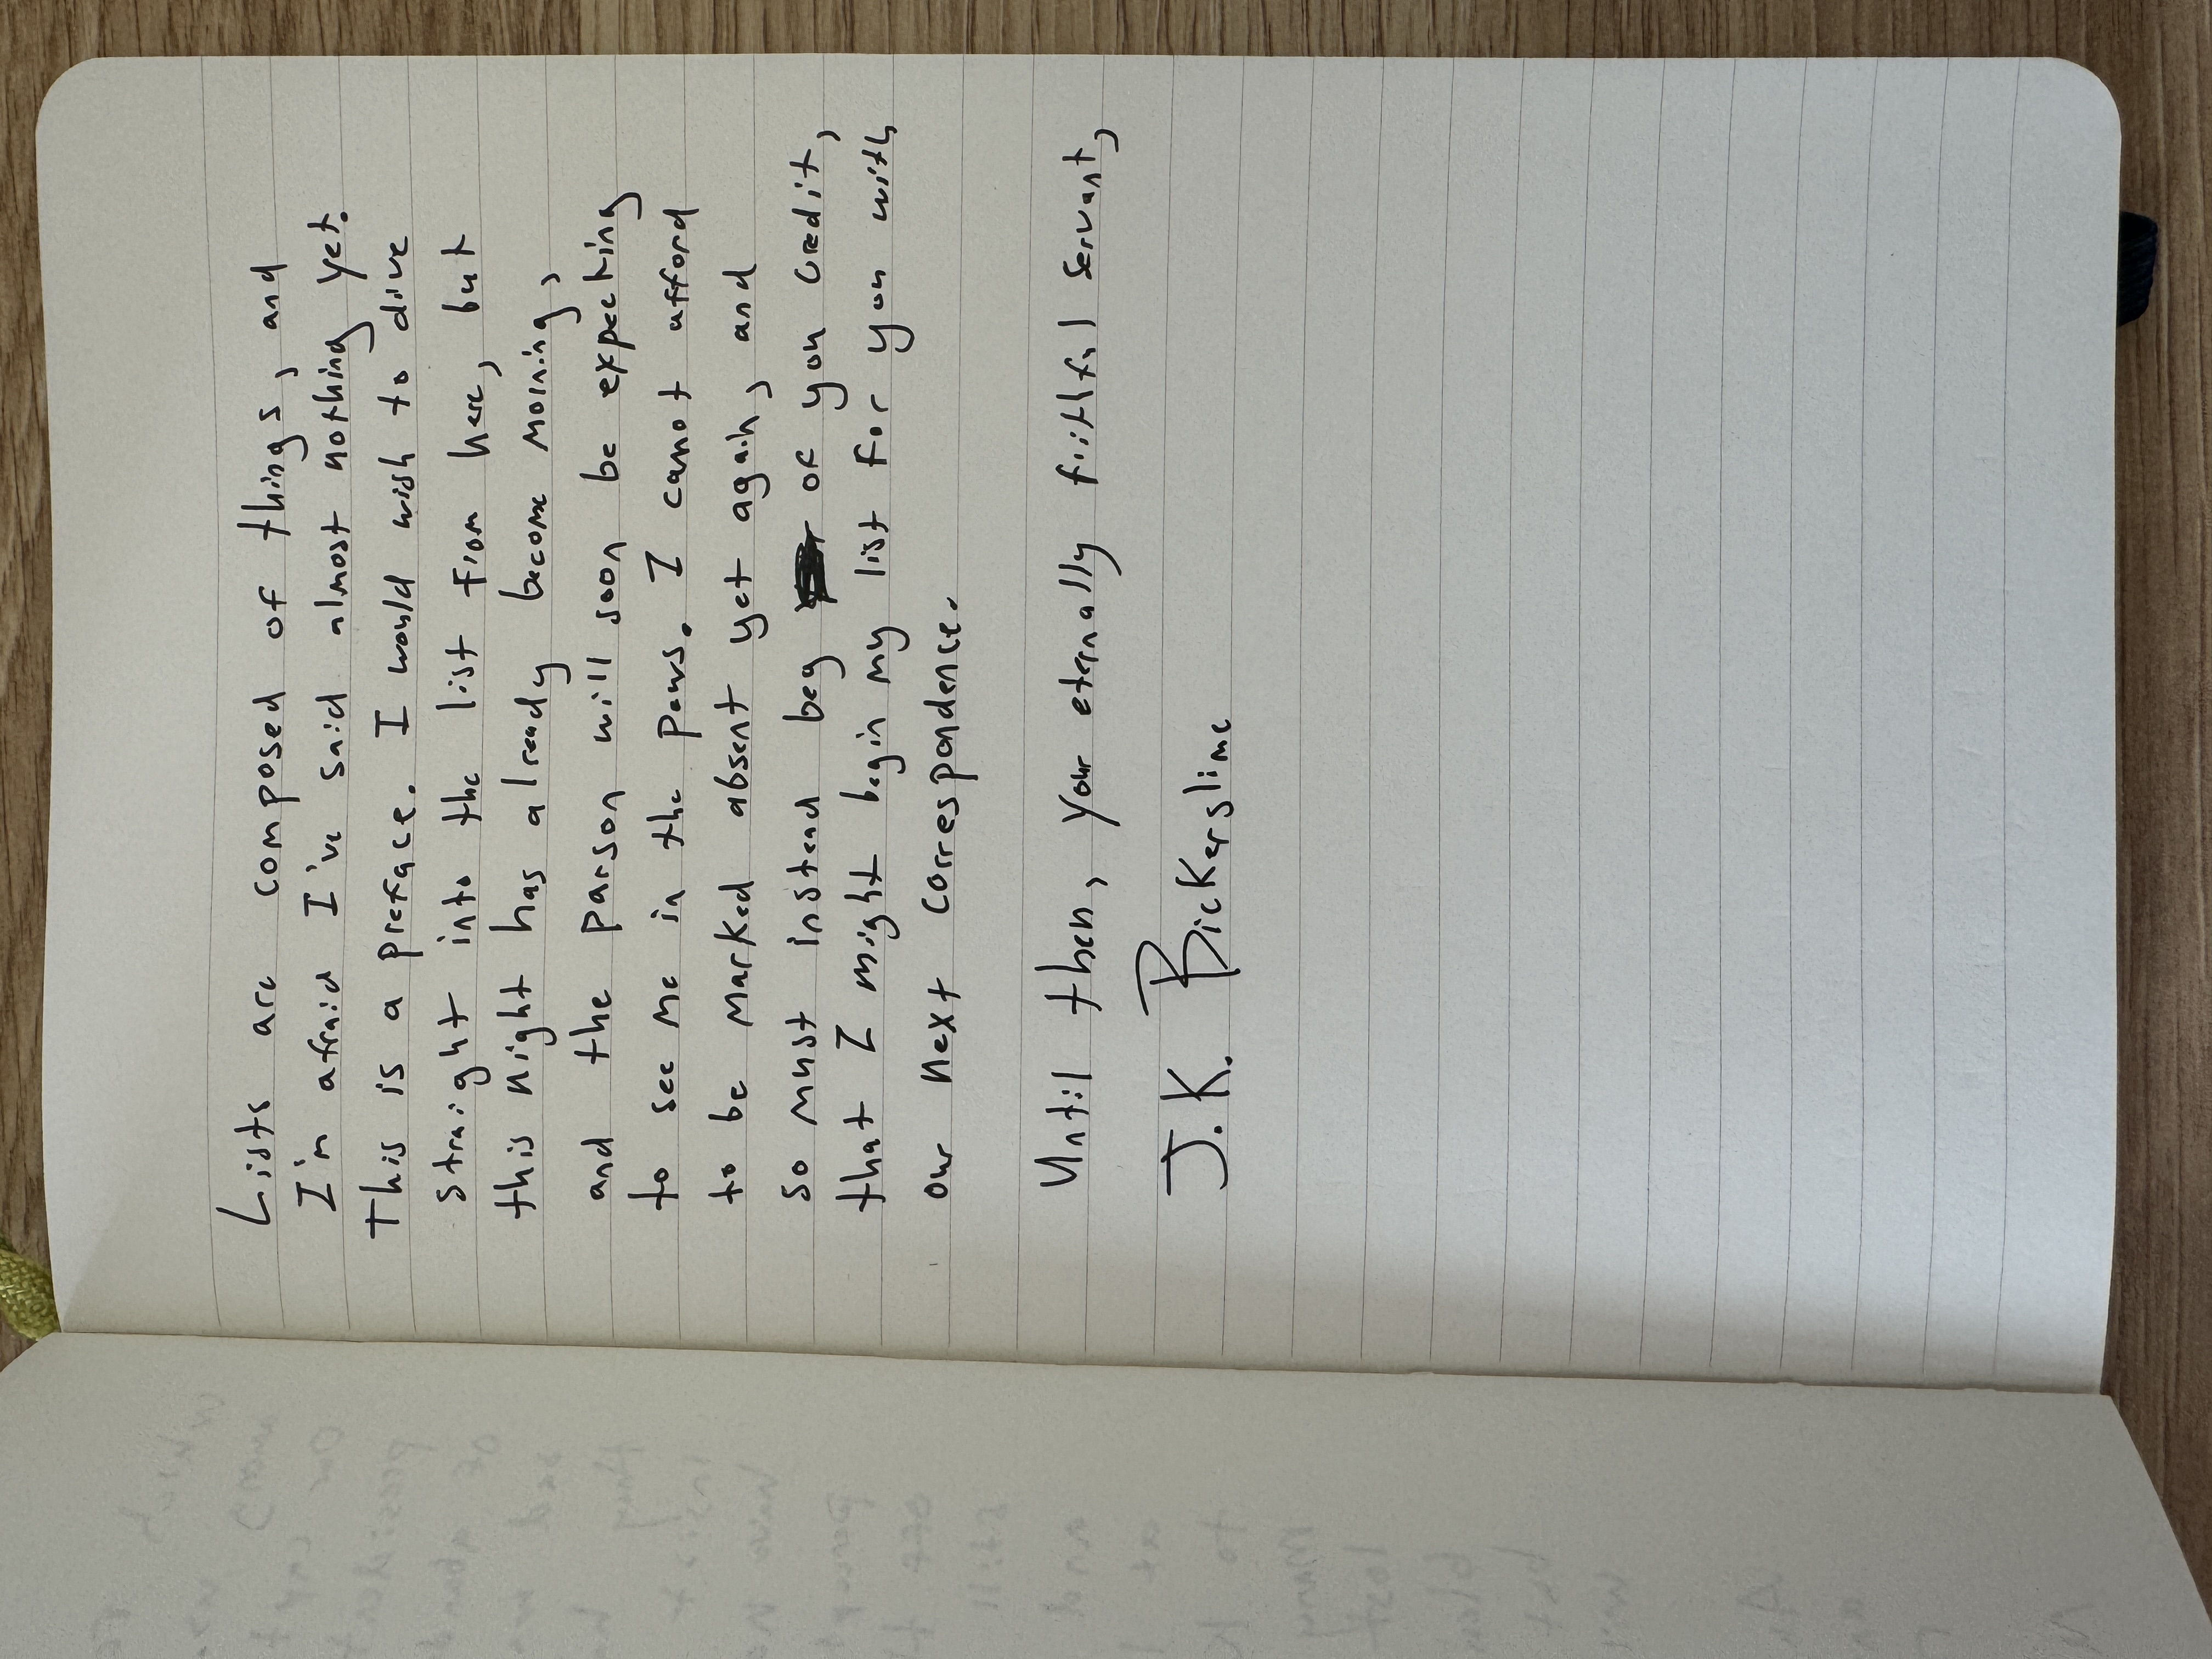 Lists are composed of things, and
I'm afraid I've said almost nothing yet.
This is a preface. I would wish to dive
straight into the list from here, but
this night has already become morning,
and the parson will soon be expecting
to see me in the pews. I cannot afford
to be marked absent yet again, and
so must instead beg of you credit,
that I might begin my list for you with
our next correspondence.
Until then, your eternally faithful servant,
J.K. Bickerslime